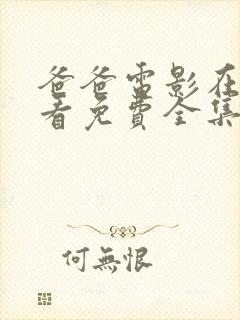 爸爸電影在
看免費全集
何無恨